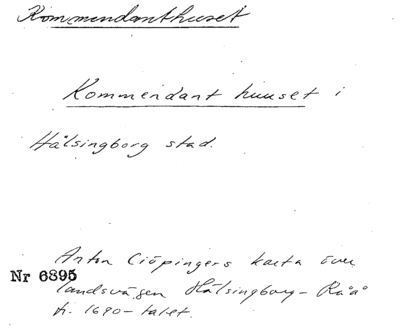 Kommendanthuset
Kommendant huuset i
Hälsingborg stad.
Anton Ciöpingers karta över
Nr 6895
landsvägen Hälsingborg - Råå
fr. 1690-talet.